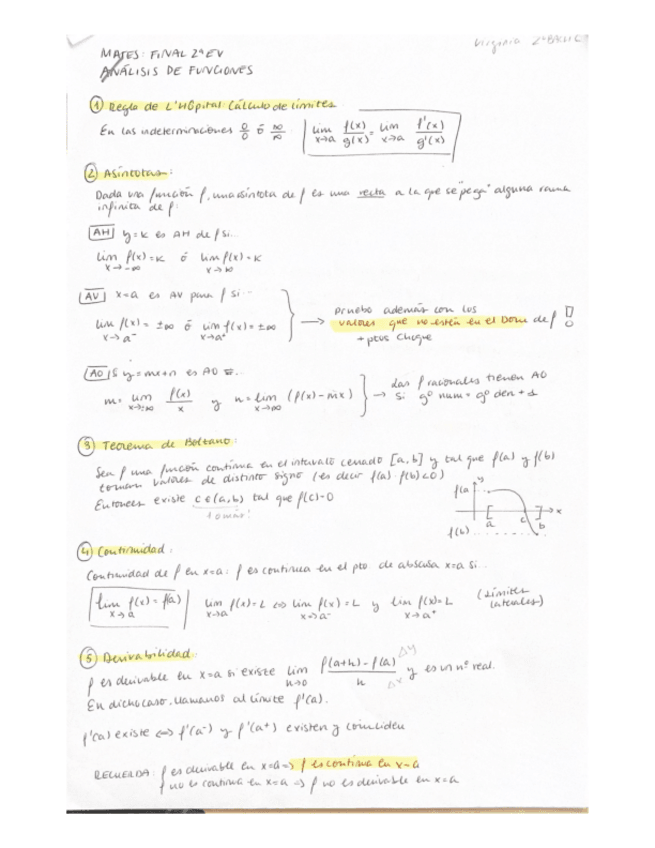 Virginia 2º BACH C
MATES: FINAL 2ª EV
ANÁLISIS DE FUNCIONES
① Regla de L'Hôpital: Cálculo de límites
En las indeterminaciones 0/0 ó ∞/∞ lim x→a f(x)/g(x) = lim x→a f'(x)/g'(x)
② Asíntotas:
Dada una función f, una asíntota de f es una recta a la que se "pega" alguna rama
infinita de f:
AH y=K es AH de f si...
lim x→-∞ f(x)=K ó lim x→∞ f(x)=K
AV x=a es AV para f si...
lim x→a⁻ f(x) = ±∞ ó lim x→a⁺ f(x) = ±∞ → pruebo además con los
valores que no estén en el Dom de f !
+ ptos choque
AO y=mx+n es AO
m= lim x→±∞ f(x)/x y n= lim x→∞ (f(x)-mx) → las f racionales tienen AO
si gº num = gº den + 1
③ Teorema de Bolzano:
Sea f una función continua en el intervalo cerrado [a,b] y tal que f(a) y f(b)
toman valores de distinto signo (es decir f(a)·f(b)<0)
Entonces existe c∈(a,b) tal que f(c)=0
1 o más!
y
f(a)
a c b x
f(b)
④ Continuidad:
Continuidad de f en x=a: f es continua en el pto de abscisa x=a si...
lim x→a f(x) = f(a) lim x→a f(x)=L ⇔ lim x→a⁻ f(x)=L y lim x→a⁺ f(x)=L (Límites
laterales)
⑤ Derivabilidad:
f es derivable en x=a si existe lim h→0 f(a+h)-f(a)/h Δy Δx y es un nº real.
En dicho caso, llamamos al límite f'(a).
f'(a) existe ⇔ f'(a⁻) y f'(a⁺) existen y coinciden
RECUERDA: f es derivable en x=a ⇒ f es continua en x=a
f no es continua en x=a ⇒ f no es derivable en x=a